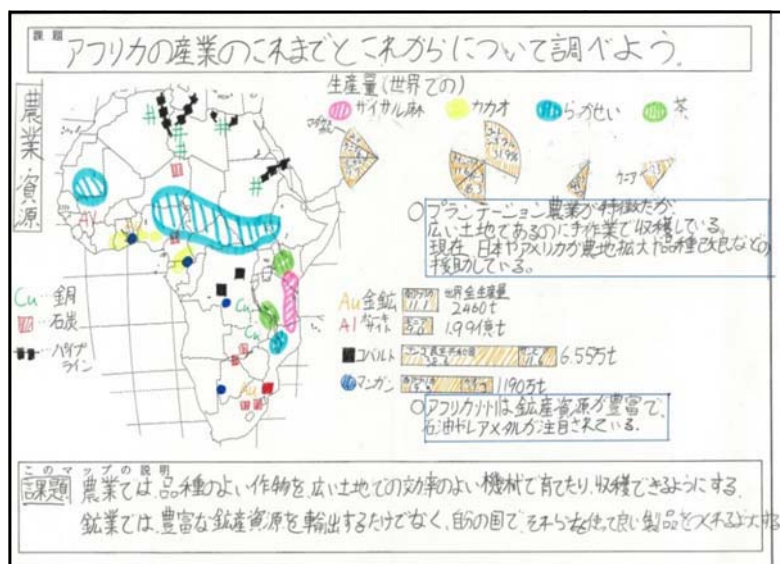 課題 アフリカの産業のこれまでとこれからについて調べよう。
農業・資源
生産量(世界での)
サイサル麻 カカオ らっかせい 茶
ケニア
○プランテーション農業が特徴だが、
広い土地であるのに手作業で収穫している。
現在、日本やアメリカが農地拡大や品種改良などの
援助している。
Al
Cu
Cu
Au
Cu…銅
石炭
パイプライン
Au金鉱 世界金生産量
2460t
Alボーキサイト 1.99億t
コバルト 6.55万t
マンガン 1190万t
○アフリカは鉱産資源が豊富で、
石油やレアメタルが注目されている。
このマップの説明
課題 農業では、品種のよい作物を、広い土地での効率のよい機械で育てたり、収穫できるようにする。
鉱業では、豊富な鉱産資源を輸出するだけでなく、自分の国で、それらを使って良い製品をつくれるようにする